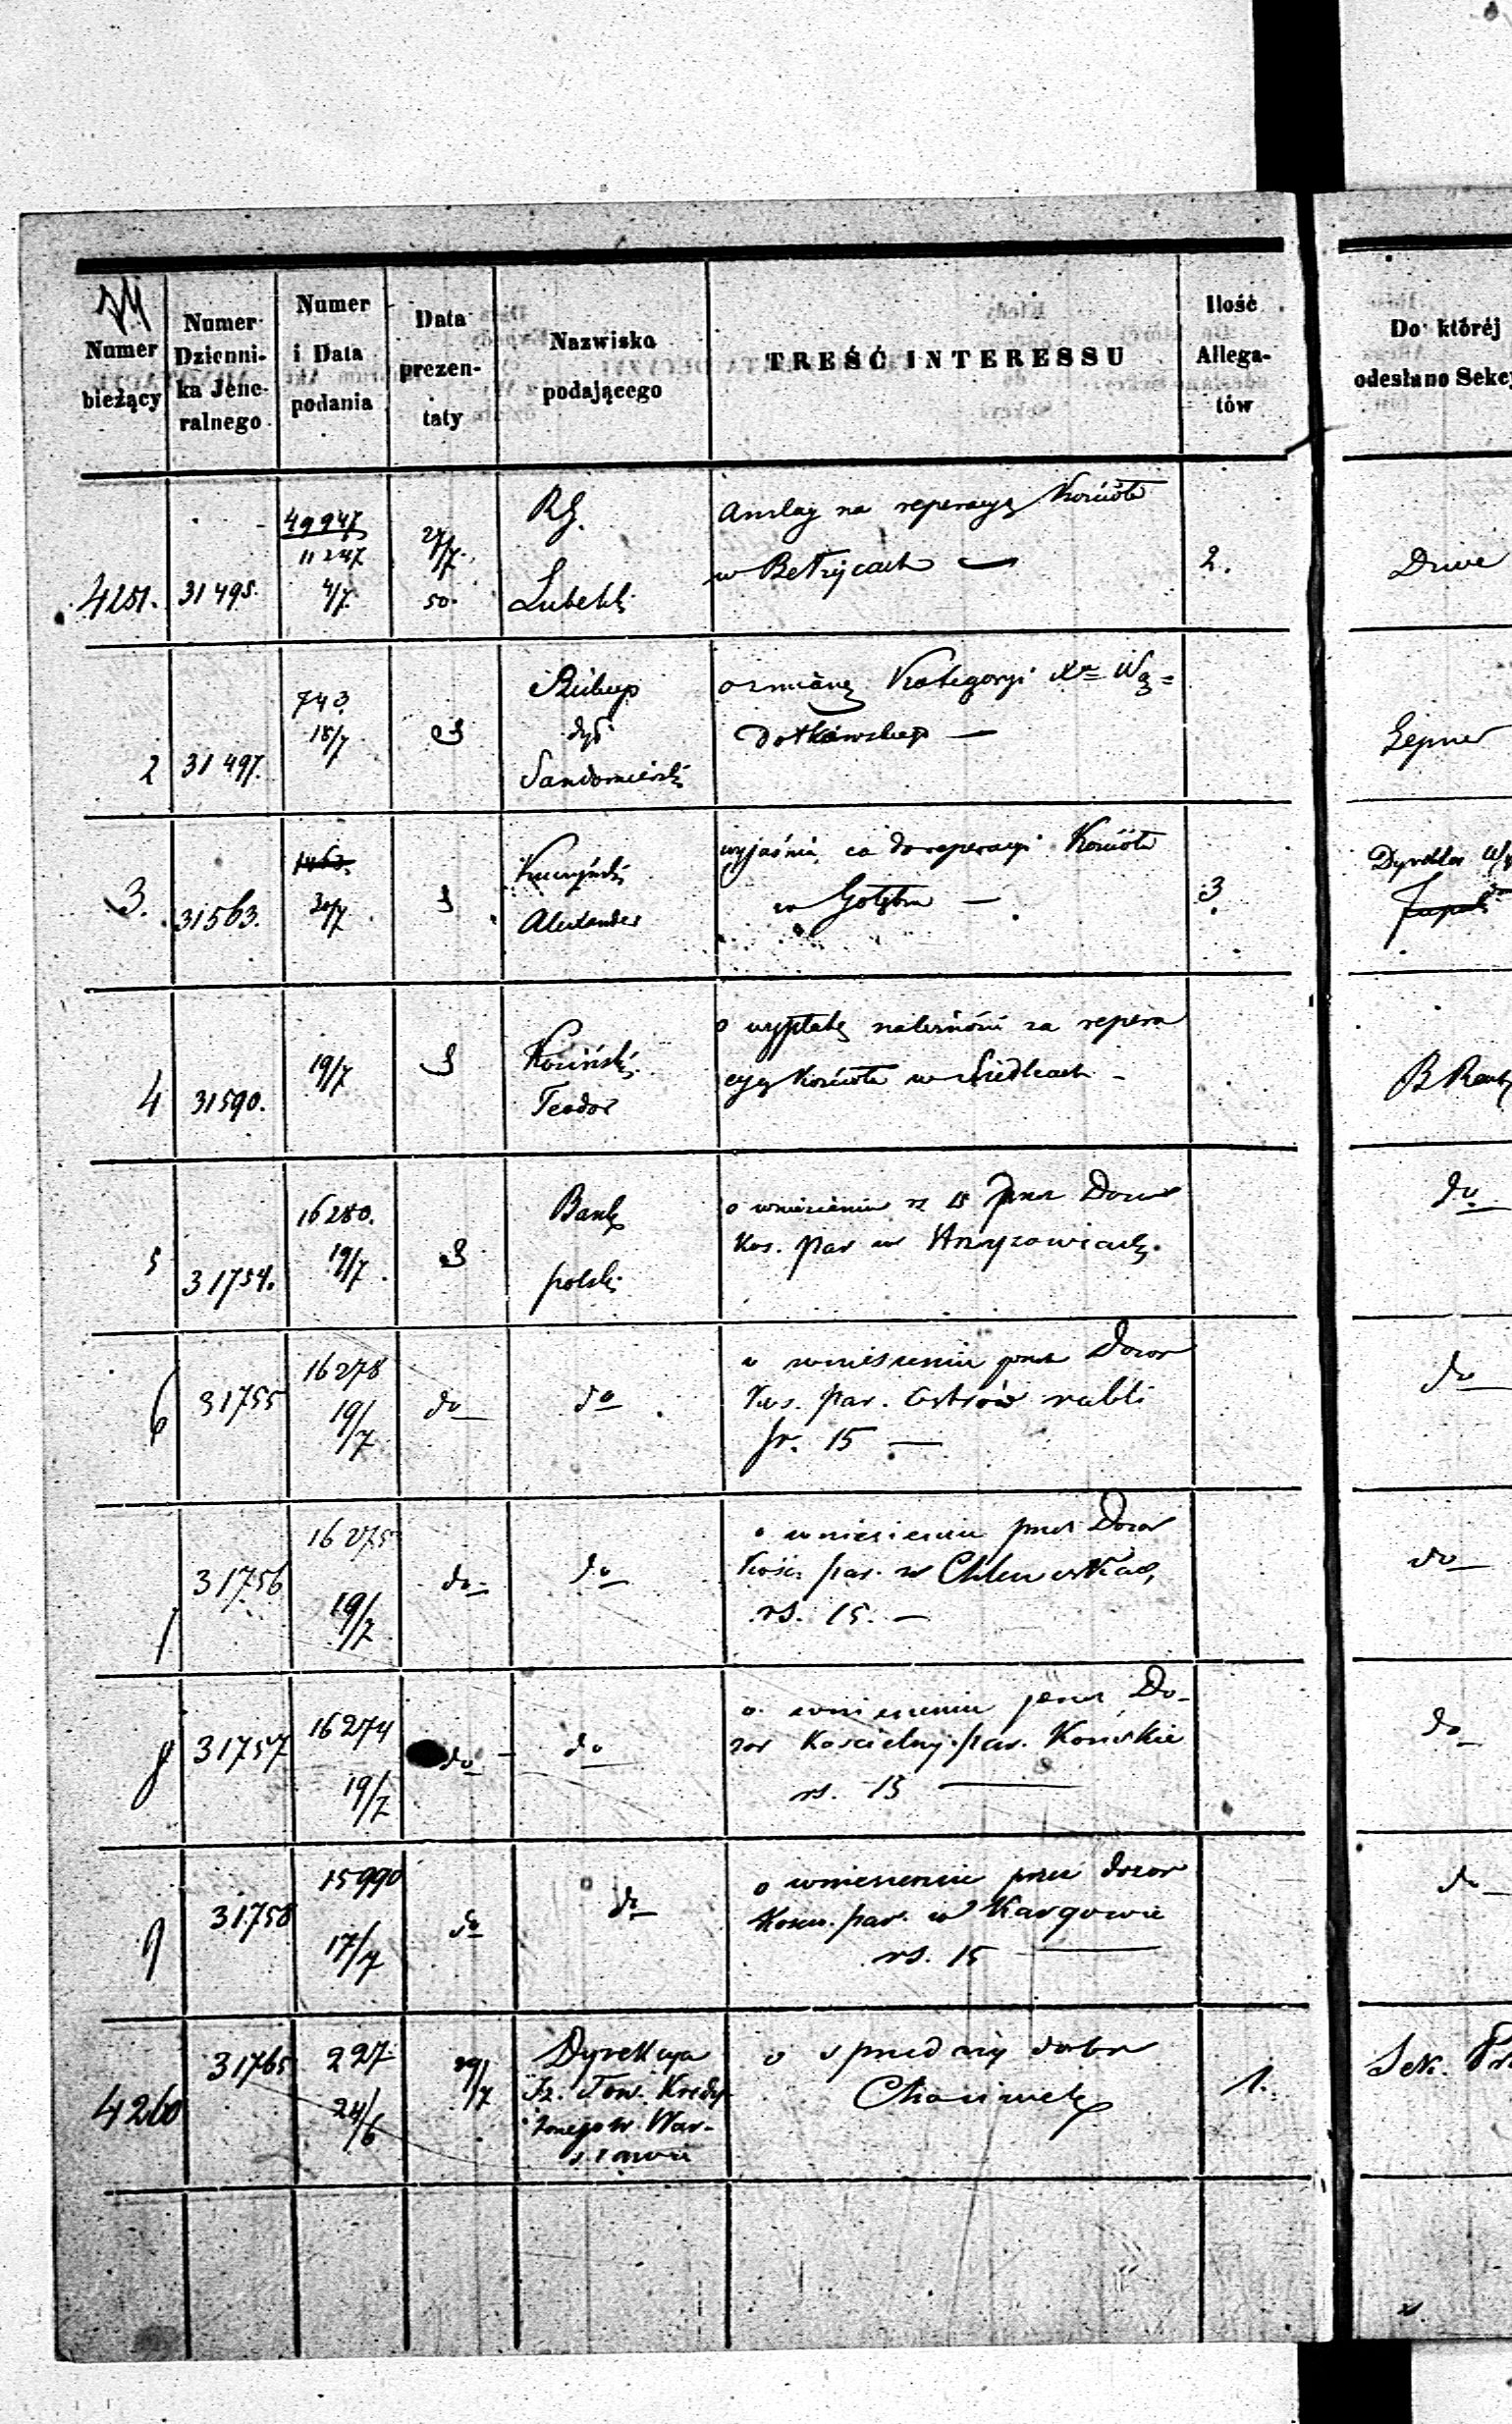 Numer bieżący
Numer Dziennika Jeneralnego
Numer i Data podania
Data prezentaty
Nazwisko podającego
TREŚĆ INTERESSU
Ilość Allegatów
Do któréj odesłano Sekcy
4251. 31495. 49947 11247 4/7 27/7 50. RG. Lubelski
Anslag na reperacyę Kościoła
w Bełżycach —
2.
2 31497. 743. 18/7
Biskup
dyć
Sandomierski
o zmianę Kategoryi Xa
3. 31563. 20/7
Alexander
wyjaśnia co do reperacyi Kościoła
w Gołębiu —
3.
Dyrektor
4 31590. 19/7
Kosiński
Teodor
o wypłatę należności za repera
cyę Kościoła w Siedlcach -
5 31754. 16280. 19/7
Bank
polski
o wniesieniu rs 15 przez Dozor
Kos. par w
do
6 31755 16278 19/7 do do
o wniesieniu przez Dozor
Kos. par. Ostrów rubli
sr. 15 —
do
31756 16275 19/7 do do
o wniesieniu przez Dozor
Kość. par. w
rs. 15. —
do
8 31757 16274 19/7 do - do
o wniesieniu przez Do-
zor Kościelny par. Końskie
rs. 15 —
do
9 31758 15990 17/7 do do
o wniesieniu przez dozor
par. w Kargowie
rs. 15 —
do
4260 31765 227 24/6 29/7
Dyrekcya
Sz. Tow. Kredy-
towego w War-
szawie
o sprzedaży dobr
1.
Sek.